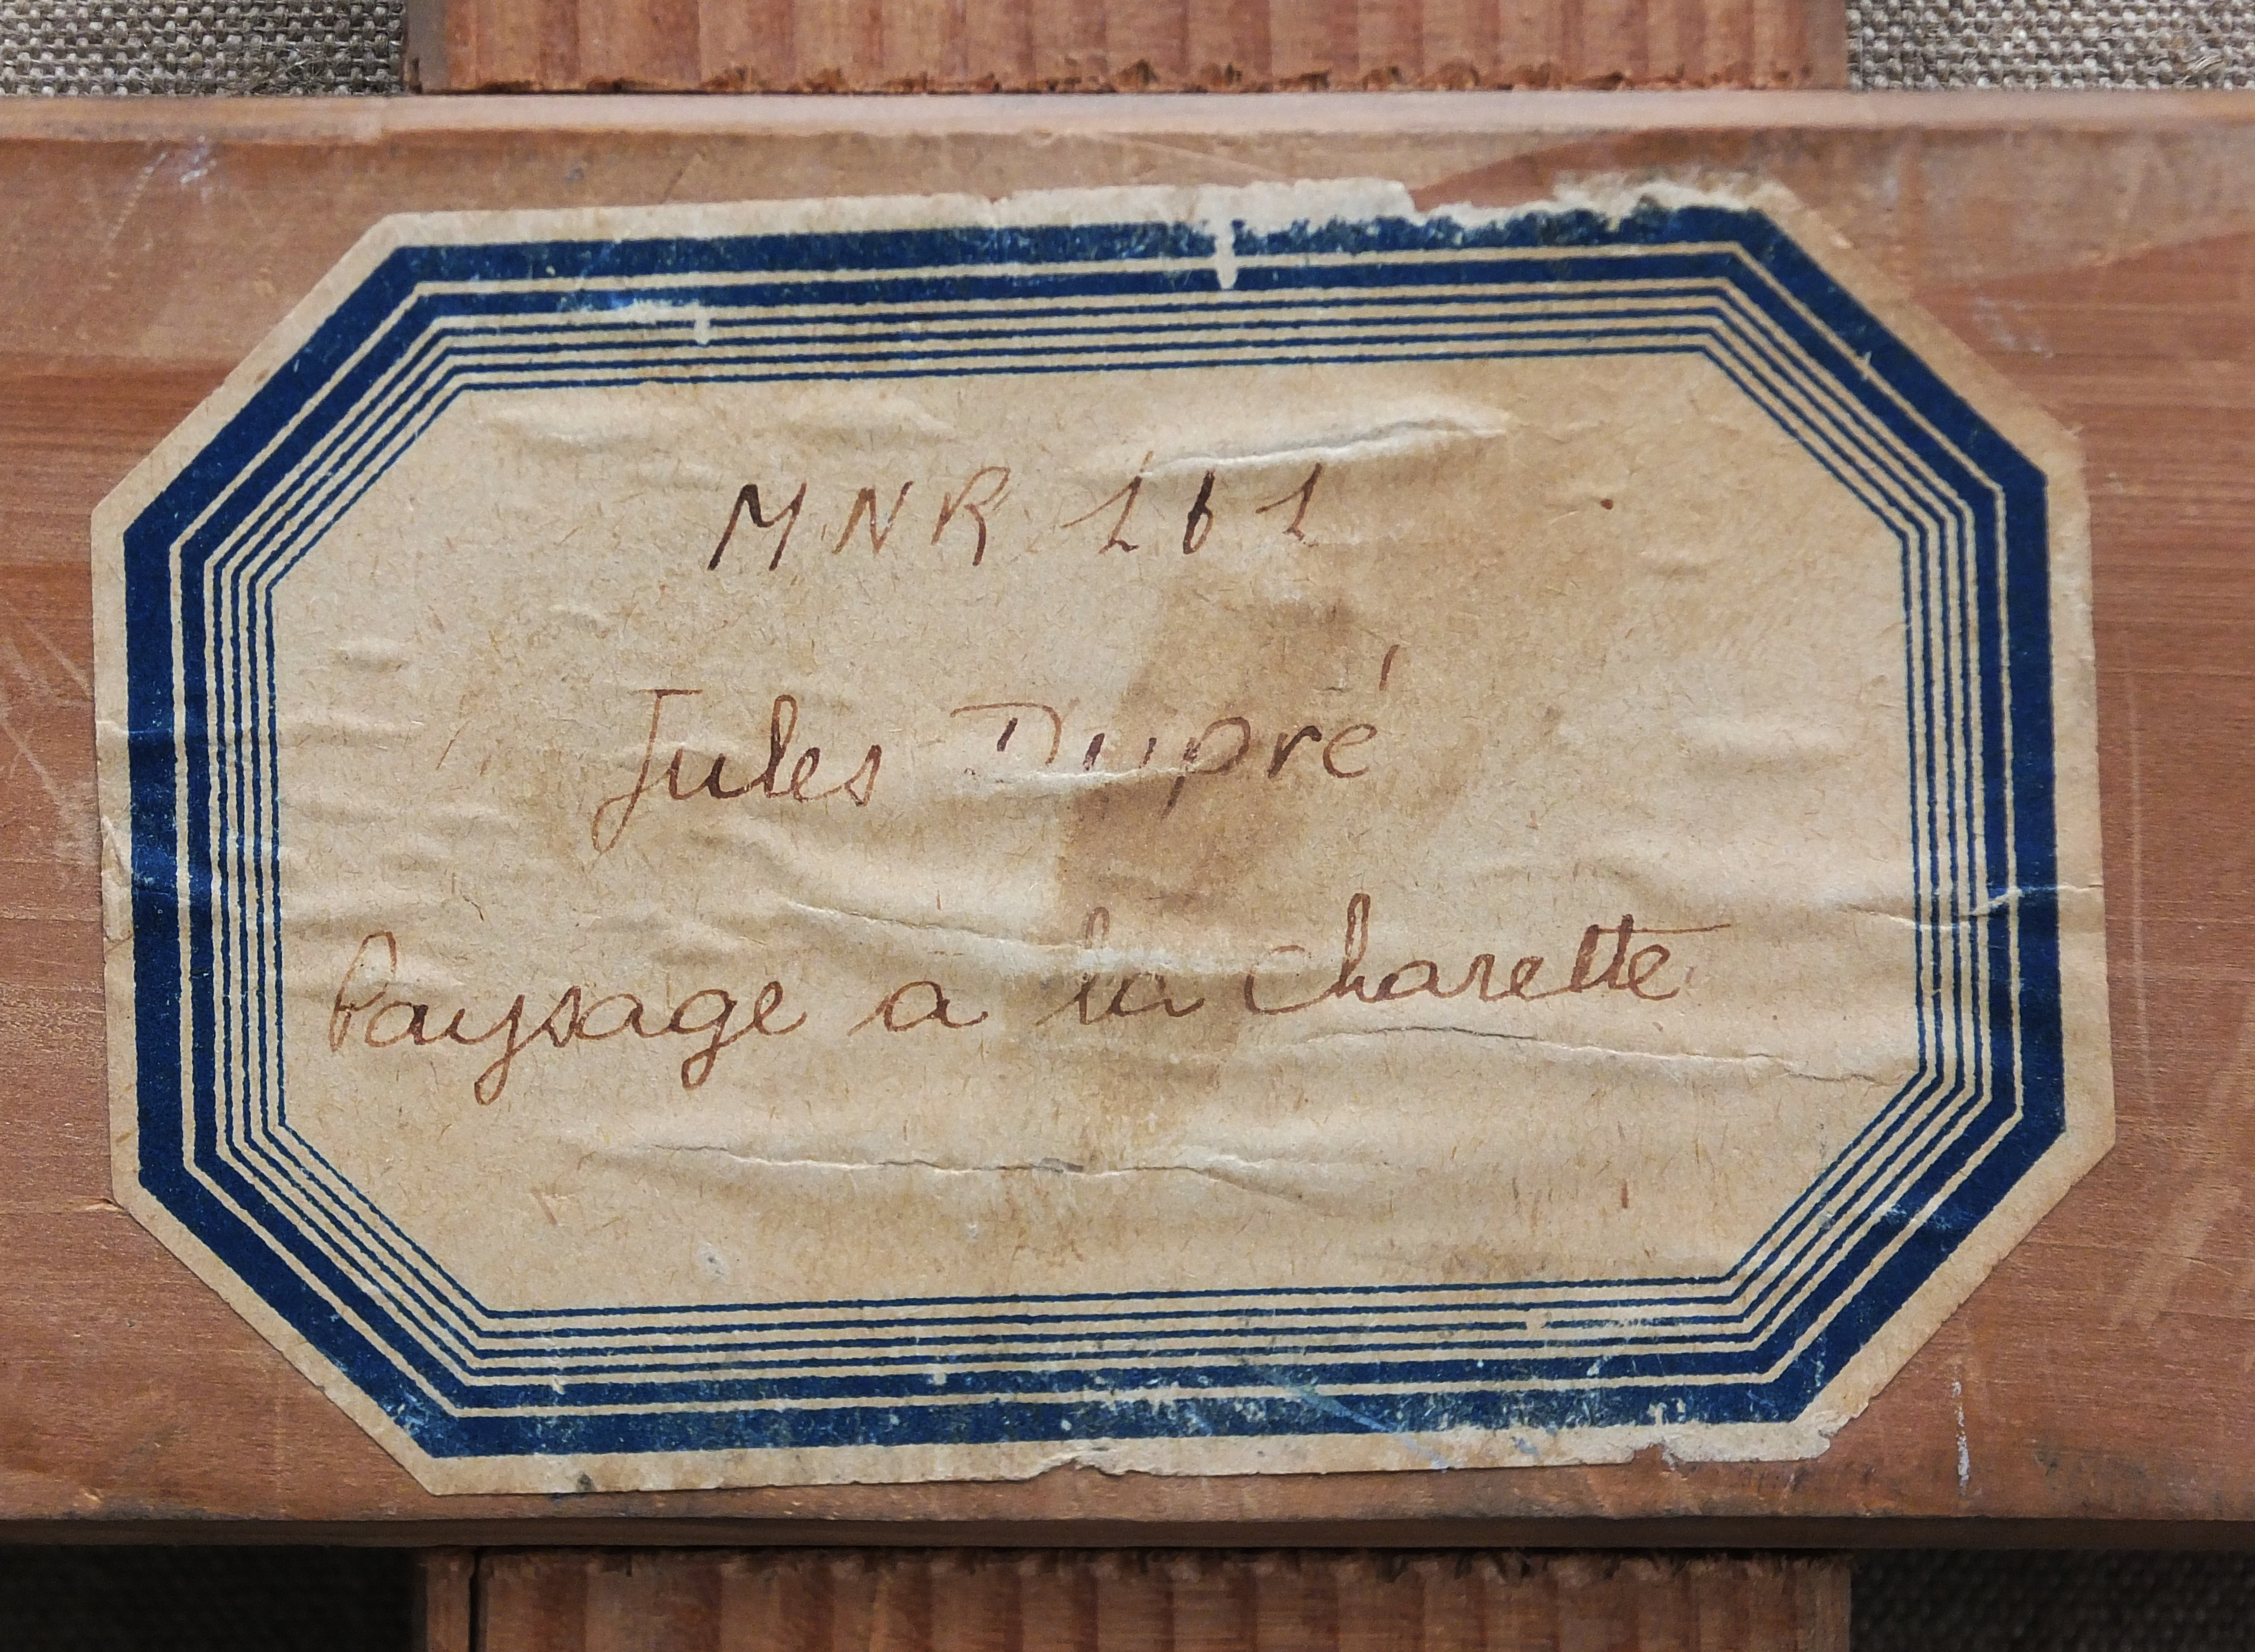 MNR 161
Jules Dupré
Paysage a la charette